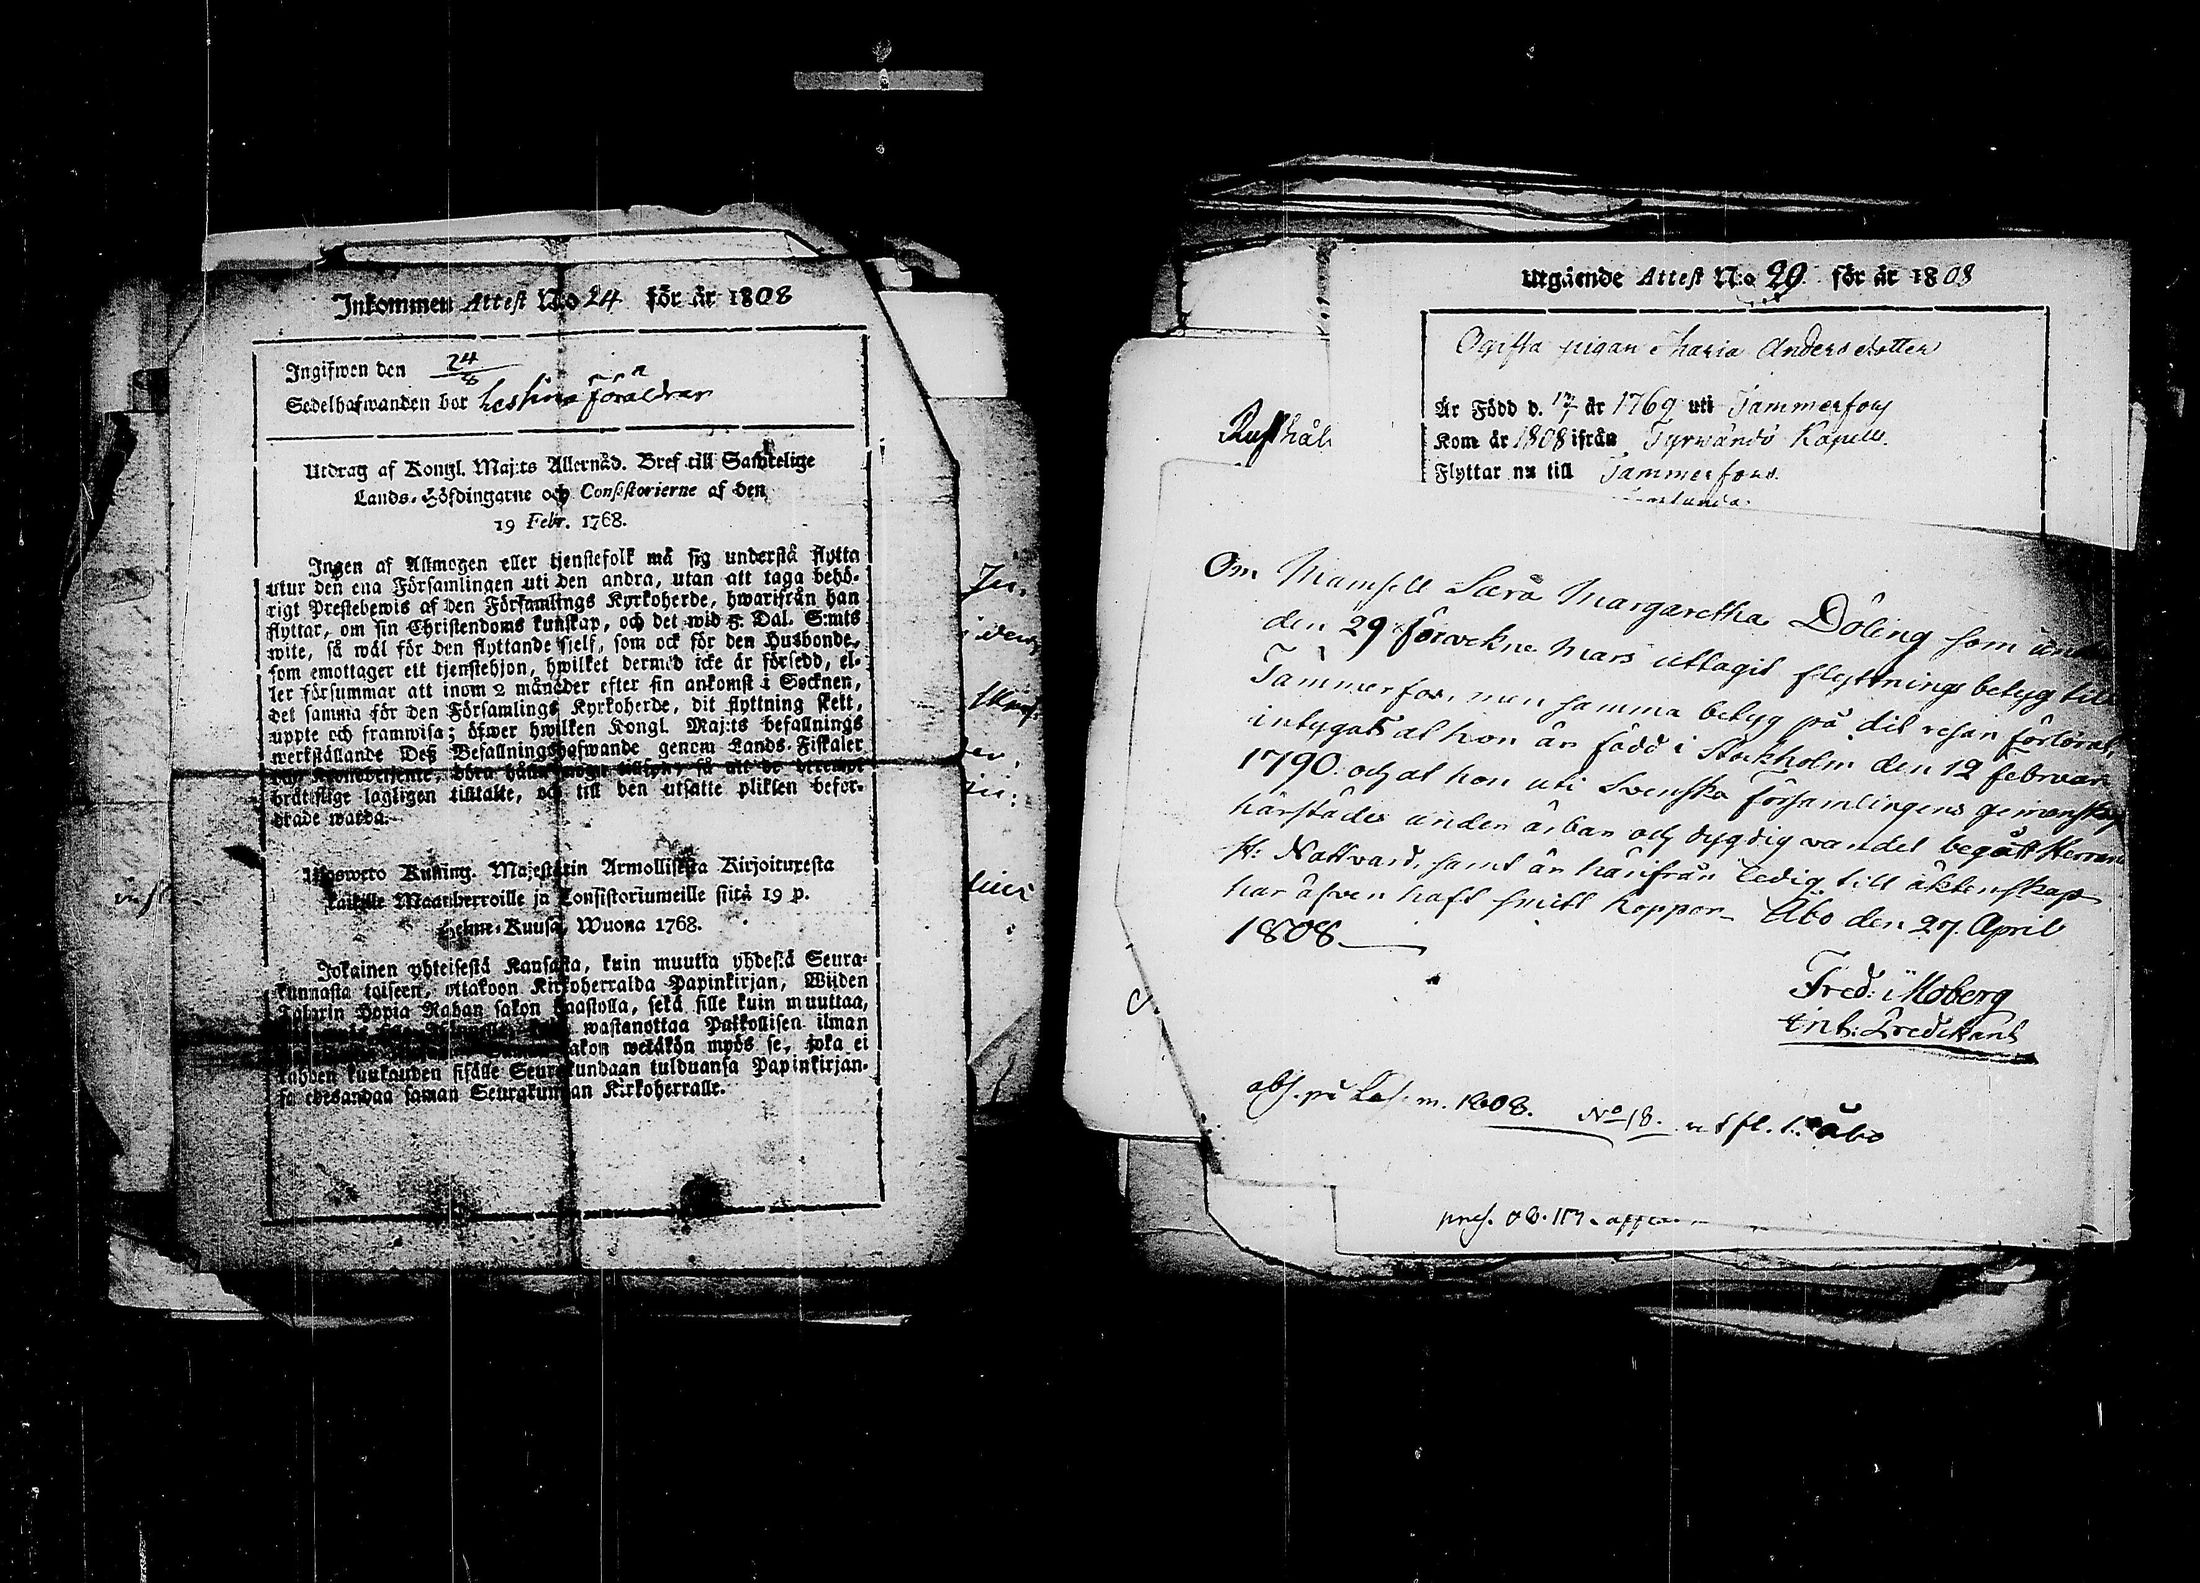 Inkommen Attest No 24 för år 1808
Ingifwen den 24/8
Sedelhafwanden bor hos sina föräldrar
Utdrag af Kongl. Maj:ts Allernåd. Bref till Samtelige
Lands-Höfdingarne och Consistorierne af den
19 Febr. 1768.
Ingen af Allmogen eller tjenstefolk må sig understå flytta
utur den ena Församlingen uti den andra, utan att taga behö-
rigt Prestebewis af den Församlings Kyrkoherde, hwarifrån han
flyttar, om sin Christendoms kunskap, och det wid 5 Dal. S:mts
wite, så wäl för den flyttande sjelf, som ock för den Husbonde,
som emottager ett tjenstehjon, hwilket dermed icke är försedd, el-
ler försummar att inom 2 månader efter sin ankomst i Socknen,
det samma för den Församlings Kyrkoherde, dit flyttning skett,
uppte och framwisa; öfwer hwilken Kongl. Maj:ts befallnings
werkställande Deß Befallningshafwande genom Lands-Fiskaler
så att de
brättslige lagligen tilltalte, och till den utsatte plikten befor-
drade warda.
Ulosweto Kuning. Majestetin Armollisesta Kirjoituxesta
kaikille Maanherroille ja Consistoriumeille siitä 19 p.
Helme-Kuusa, Wuona 1768.
Jokainen yhteisestä Kansasta, kuin muutta yhdestä Seura-
kunnasta toiseen, ottakoon Kirkoherralda Papinkirjan, Wijden
Talarin Hopia Rahan sakon haastolla, sekä sille kuin muuttaa,
wastanottaa Palkollisen ilman
sakon wetäkön myös se, joka ei
kahden kuukauden sisälle Seurakundaan tulduansa Papinkirjan-
sa edesandaa saman Seurakunnan Kirkoherralle.
Utgående Attest N:o 29. för år 1808
Ogifta pigan Maria Andersdotter
Är Född d. år 1769 uti Tammerfors
Kom år 1808 ifrån Tyrwändö Kapell.
Flyttar nu till Tammerfors.
Rusthål
Om Mamsell Sara Margaretha Döling som under
den 29 förvekne Mars uttagit flyttnings betyg till
Tammerfors, men samma betyg på dit resan förlorat,
intygas at hon är född i Stockholm den 12 februari
1790. och at hon uti Svenska Församlingens gemenskap
härstädes under ärbar och dygdig vandel begått Herrans
H: Nattvard, samt är härifrån ledig till äktenskap
har äfven haft smitt koppor. Åbo den 27. April
1808
Fred: Moberg
Ent: Predikant
abs. på 1808. No 18. utfl. Åbo